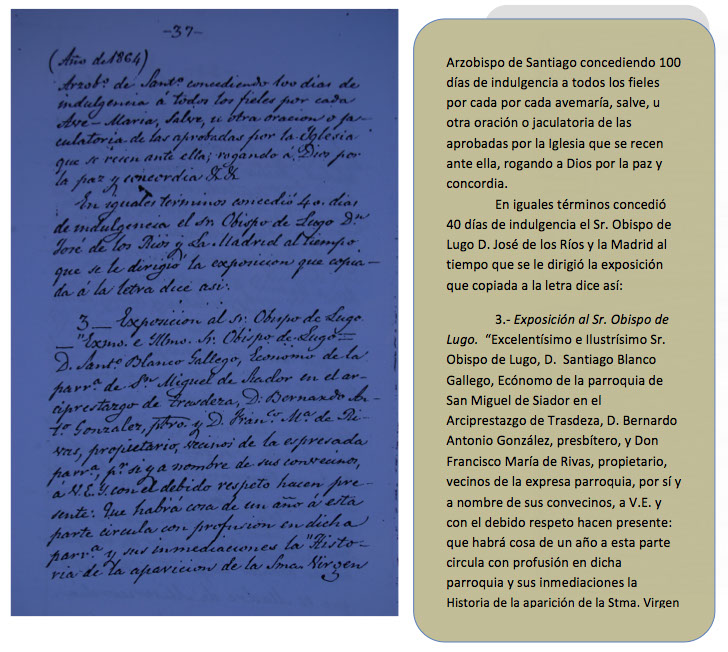 -37-
(Año de 1864)
Arzobº. de Santº. concediendo 100 dias de
indulgencia á todos los fieles por cada
Ave-Maria, Salve, u otra oracion o ja-
culatoria de las aprobadas por la Iglesia
que se recen ante ella; rogando á Dios por
la paz y concordia &&
En iguales terminos concedió 40. dias
de indulgencia el Sr. Obispo de Lugo Dn.
José de los Rios y La Madrid al tiempo
que se le dirigió la exposicion que copia-
da á la letra dice asi:
3_ Exposicion al Sr. Obispo de Lugo
"Exmo. e Illmo. Sr. Obispo de Lugo=
D. Santº. Blanco Gallego, Economo de la
parrª. de Sn. Miguel de Siador en el ar-
ciprestazgo de Trasdeza, D. Bernardo An-
tº. Gonzalez, pbro. y D. Francº. Mª. de Ri-
vas, propietario, vecinos de la espresada
parrª, pr. si y a nombre de sus convecinos,
á V.E.Y. con el debido respeto hacen pre-
sente: Que habrá cosa de un año á esta
parte circula con profusion en dicha
parrª. y sus inmediaciones la "Histo-
ria de la aparicion de la Sma. Virgen
Arzobispo de Santiago concediendo 100
días de indulgencia a todos los fieles
por cada por cada avemaría, salve, u
otra oración o jaculatoria de las
aprobadas por la Iglesia que se recen
ante ella, rogando a Dios por la paz y
concordia.
En iguales términos concedió
40 días de indulgencia el Sr. Obispo de
Lugo D. José de los Ríos y la Madrid al
tiempo que se le dirigió la exposición
que copiada a la letra dice así:
3.- Exposición al Sr. Obispo de
Lugo. "Excelentísimo e Ilustrísimo Sr.
Obispo de Lugo, D. Santiago Blanco
Gallego, Ecónomo de la parroquia de
San Miguel de Siador en el
Arciprestazgo de Trasdeza, D. Bernardo
Antonio González, presbítero, y Don
Francisco María de Rivas, propietario,
vecinos de la expresa parroquia, por sí y
a nombre de sus convecinos, a V.E. y
con el debido respeto hacen presente:
que habrá cosa de un año a esta parte
circula con profusión en dicha
parroquia y sus inmediaciones la
Historia de la aparición de la Stma. Virgen